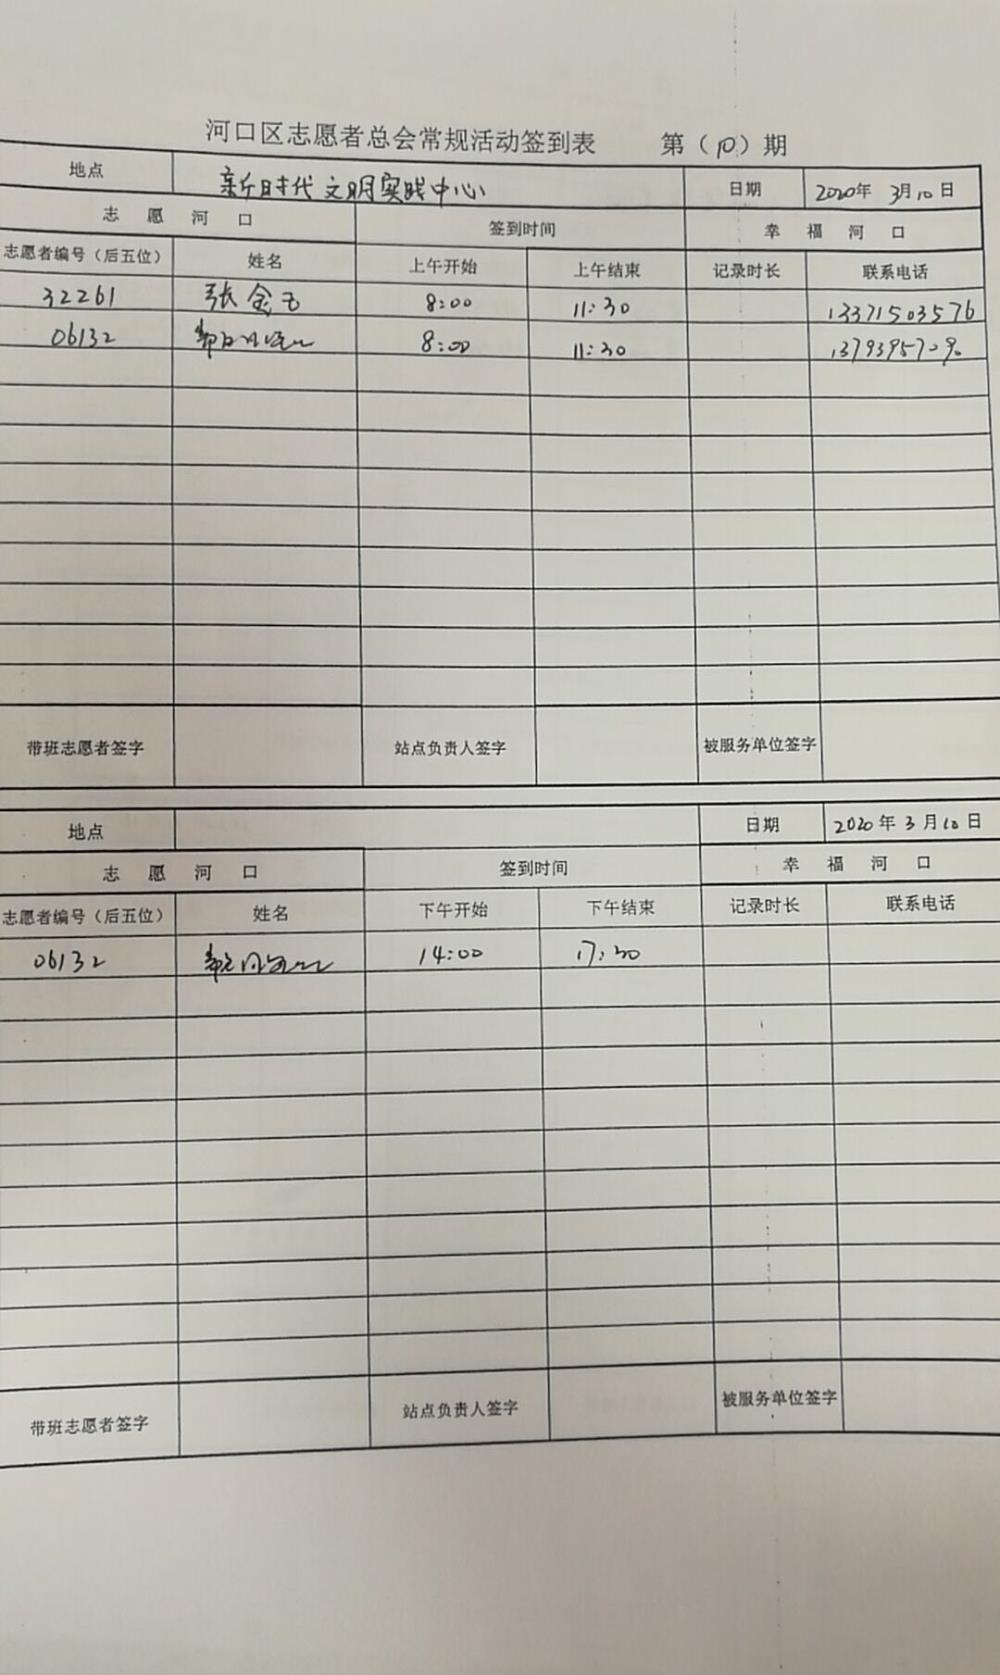 河口区志愿者总会常规活动签到表 第（10）期
地点 新时代文明实践中心 日期 2020年 3月10日
志愿河口 签到时间 幸福河口
志愿者编号（后五位） 姓名 上午开始 上午结束 记录时长 联系电话
32261 张金玉 8:00 11:30 13371503576
06132 8:00 11:30
带班志愿者签字 站点负责人签字 被服务单位签字
地点 日期 2020年3月10日
志愿河口 签到时间 幸福河口
志愿者编号（后五位） 姓名 下午开始 下午结束 记录时长 联系电话
06132 14:00 17:30
带班志愿者签字 站点负责人签字 被服务单位签字